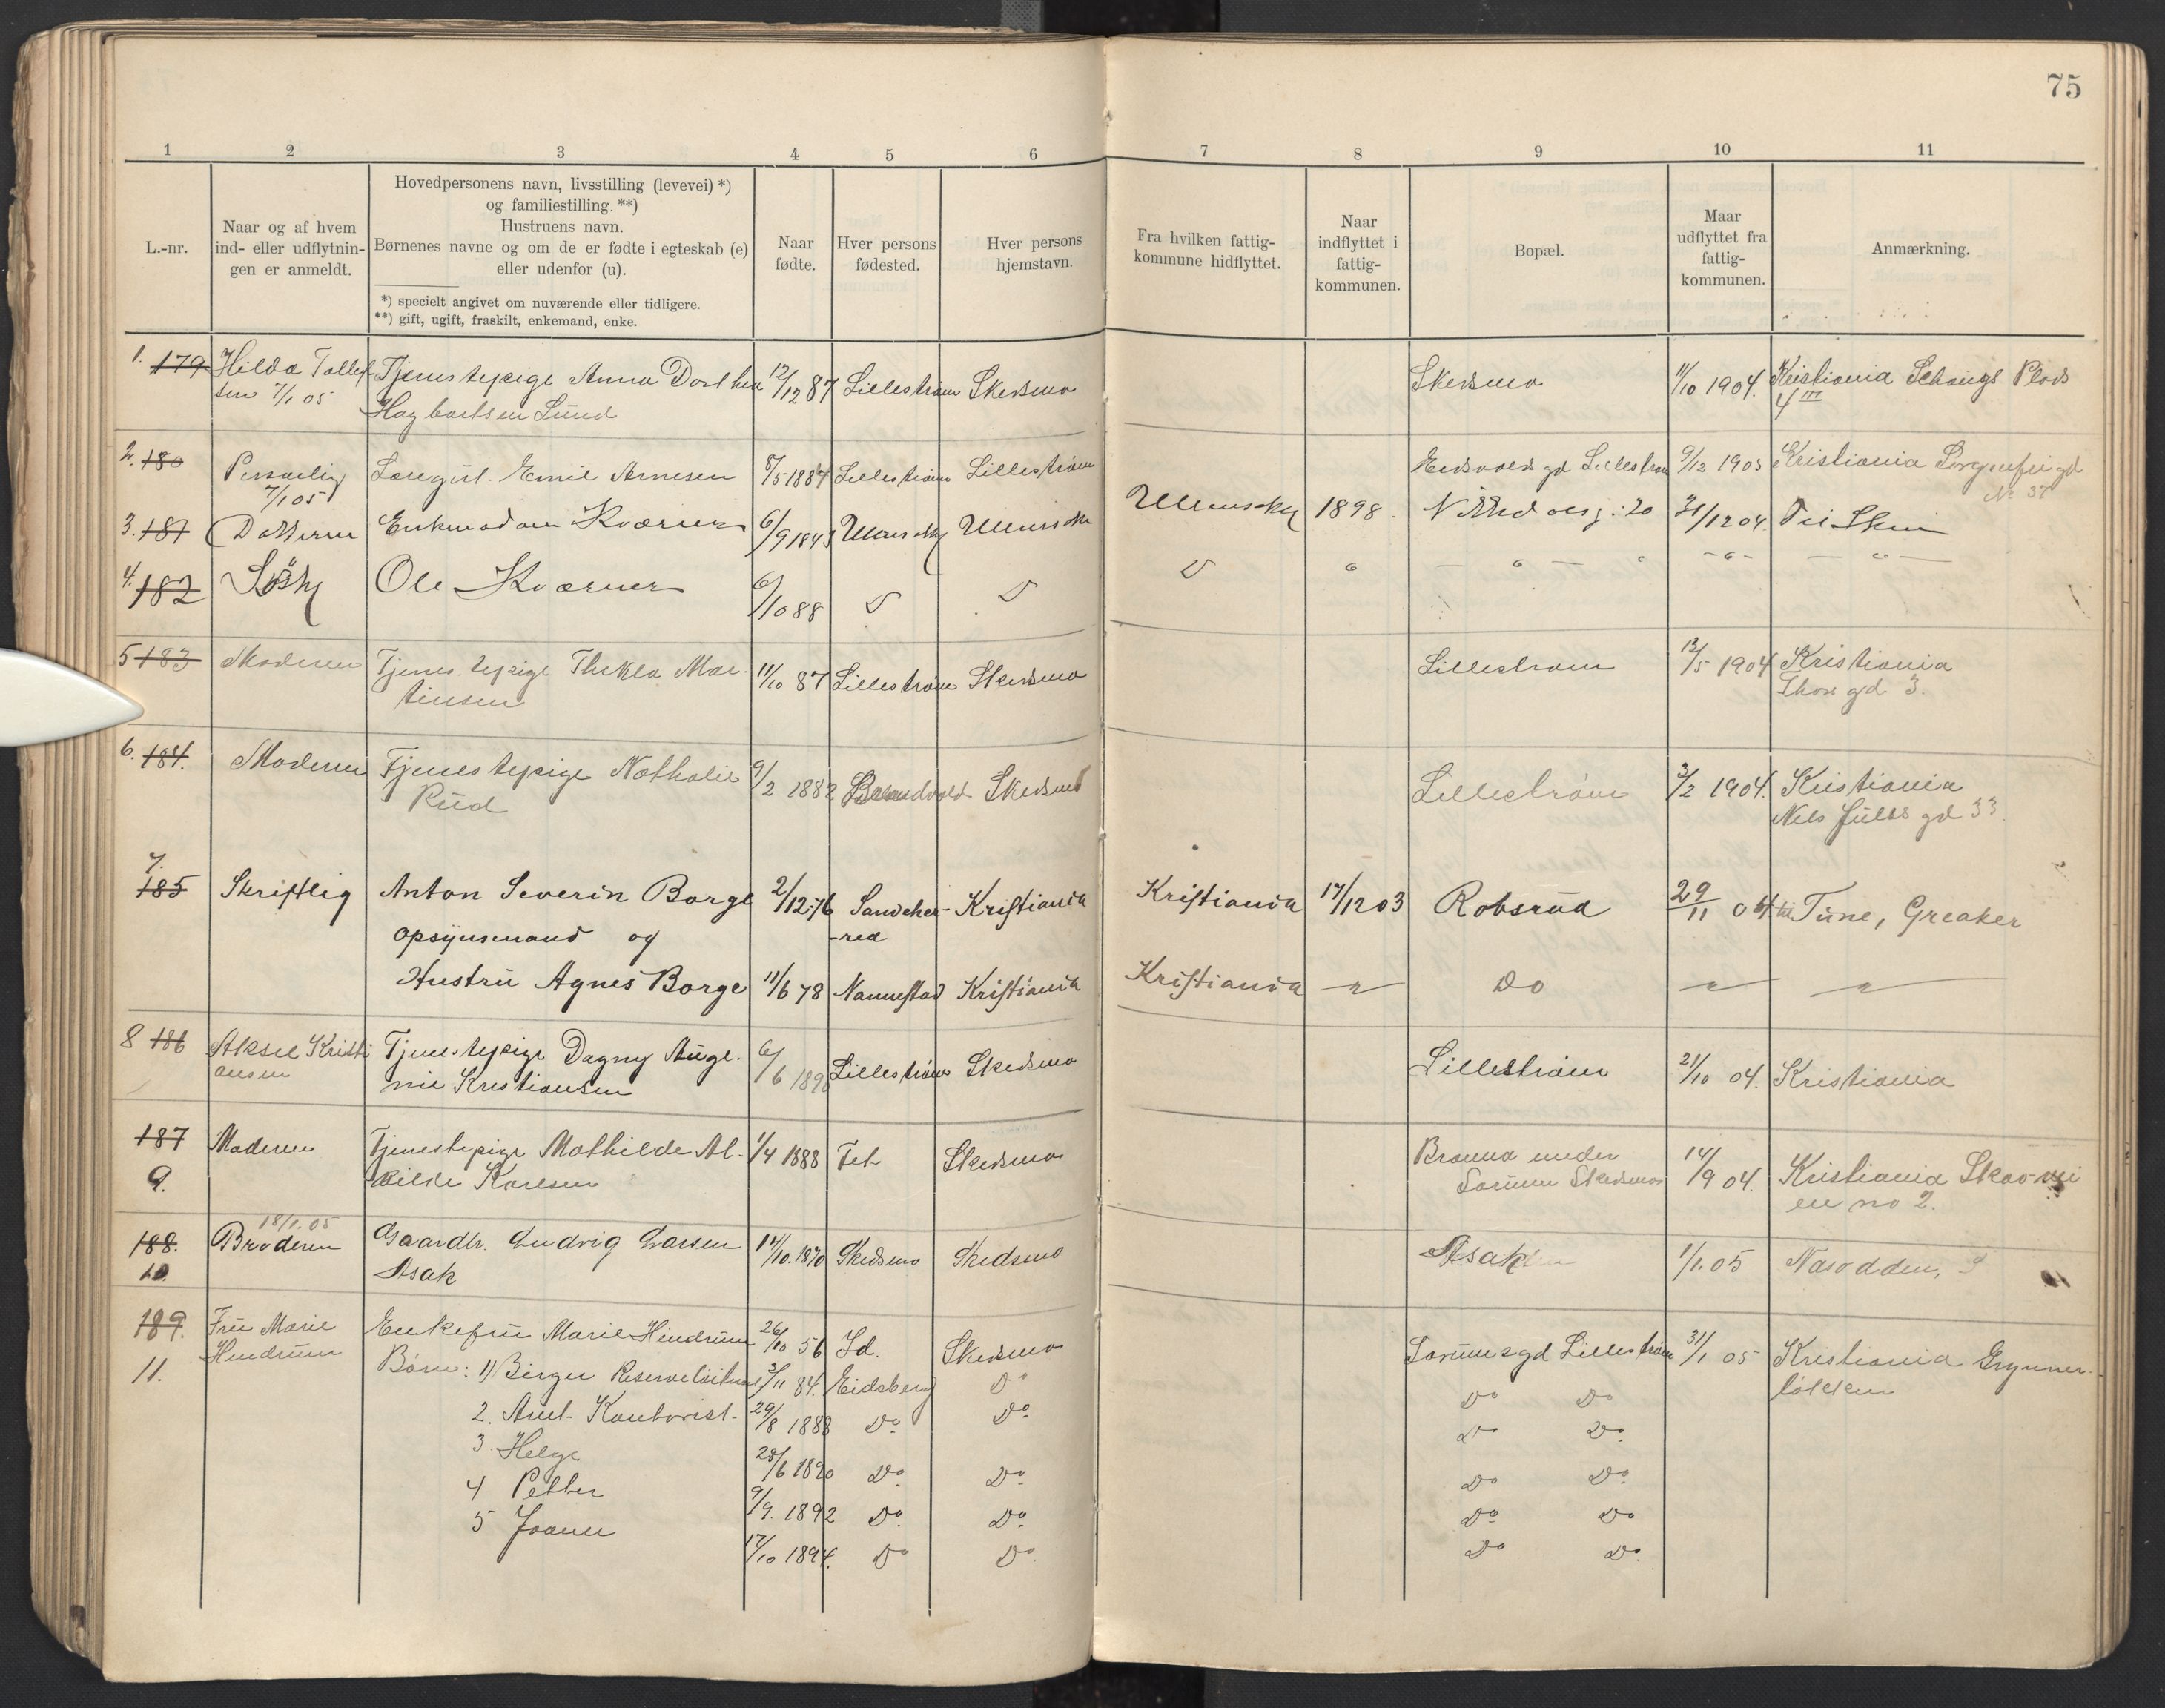 75
1 2 3 4 5 6 7 8 9 10 11
L.-nr.
Naar og af hvem
ind- eller udflytnin-
gen er anmeldt.
Hovedpersonens navn, livsstilling (levevei) *)
og familiestilling. **)
Hustruens navn.
Børnenes navne og om de er fødte i egteskab (e)
eller udenfor (u).
*) specielt angivet om nuværende eller tidligere.
**) gift, ugift, fraskilt, enkemand, enke.
Naar
fødte.
Hver persons
fødested.
Hver persons
hjemstavn.
Fra hvilken fattig-
kommune hidflyttet.
Naar
indflyttet i
fattig-
kommunen.
Bopæl.
Maar
udflyttet fra
fattig-
kommunen.
Anmærkning.
1. 179 Hilda Tollef Tjenestepige Anna Dorthea 12/12 87 Lillestrøm Skedsmo Skedsmo 11/10 1904. Kristiania Schougs Plads
sen 7/1 05 Hagbartsen Lund 4 III
2. 180 Personlig Emil Arnesen 8/5 1884 Lillestrøm Lillestrøm Eidsvolds gd Lillestrøm 9/12 1903 Kristiania Sorgenfri gd
7/1 05 No 37
3. 181 Datteren Enkemadam Kværner 6/9 1843 Ullensk Ullensk Ullensk 1898 20 31/12 04. Til Skien
4. 182 Ole Kværner 6/10 88
5 183 Moderen Tjenestepige Thekla Mar- 11/10 87 Lillestrøm Skedsmo Lillestrøm 13/5 1904 Kristiania
tinsen gd 3.
6. 184. Moderen Tjenestepige Nathalie 9/2 1882 Brandvold Skedsmo Lillestrøm 3/2 1904. Kristiania
Rud Nils Juels gd 33.
7.
185 Skriftlig Anton Severin Borge 2/12 76 Sandeher- Kristiania Kristiania 17/12 03 Robsrud 29/11 04 til Tune, Greaker
opsynsmand og -red
Hustru Agnes Borge 11/6 78 Nannestad Kristiania Kristiania " Do " "
8 186 Aksel Kristi Tjenestepige Dagny Auge- 6/6 189 Lillestrøm Skedsmo Lillestrøm 21/10 04. Kristiania
ansen nie Kristiansen
187 Moderen Tjenestepige Mathilde Al- 1/4 1888 Fet Skedsmo Branna under 14/9 04. Kristiania
9. vilde Karlsen Sørum Skedsmo no 2.
18/1. 05
188. Broderen Gaardbr. Ludvig Larsen 14/10. 1870 Skedsmo Skedsmo Asak 1/1. 05 Nasodden,
10. Asak
189. Fru Marie Enkefru Marie Hindrum 26/10 56 Id. Skedsmo Sorumsgd Lillestrøm 31/1 05 Kristiania Grynner-
11. Hindrum Børn: 1) Birger Reserveløitnant 3/11 84. Eidsberg Do Do Do løkken
2. Kontorist- 29/8 1888 Do Do Do Do
3. Helge 28/6 1890 Do Do Do Do
4 Petter 9/9. 1892 Do Do Do Do
5 17/10 1894. Do Do Do Do